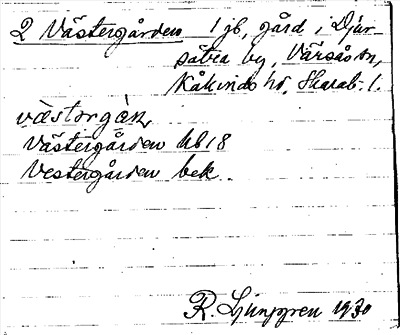 2 Västergården 1 gb, gård i Djur-
sätra by, Värsås sn,
Kåkinds hd, Skarab. l.
västorgån,
Västergården hb 18
Vestergården bek.
R. Ljunggren 1930